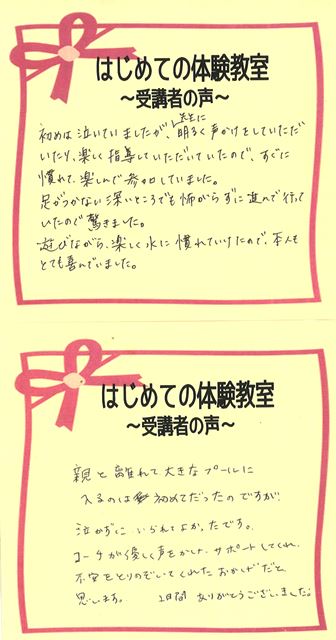 はじめての体験教室
～受講者の声～
先生に
初めは泣いていましたが、明るく声かけをしていただ
いたり、楽しく指導していただいていたので、すぐに
慣れて、楽しんで参加していました。
足がつかない深いところでも怖がらずに進んで行って
いたので驚きました。
遊びながら、楽しく水に慣れていけたので、本人も
とても喜んでいました。
はじめての体験教室
～受講者の声～
親と離れて大きなプールに
入るのは初めてだったのですが
泣かずにいられてよかったです。
コーチが優しく声をかけ、サポートしてくれ、
不安をとりのぞいてくれたおかげだと
思います。 2日間 ありがとうございました。